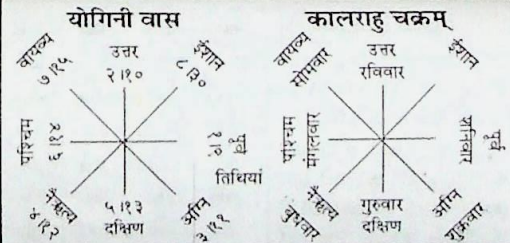 योगिनी वास
वायव्य
७।१५
उत्तर
२।१०
ईशान
८।३०
पश्चिम
६।१४
पूर्व
१।९
तिथियां
नैऋत्य
४।१२
५।१३
दक्षिण
अग्नि
३।११
कालराहु चक्रम्
वायव्य
सोमवार
उत्तर
रविवार
ईशान
पश्चिम
मंगलवार
पूर्व
शनिवार
नैऋत्य
बुधवार
गुरुवार
दक्षिण
अग्नि
शुक्रवार